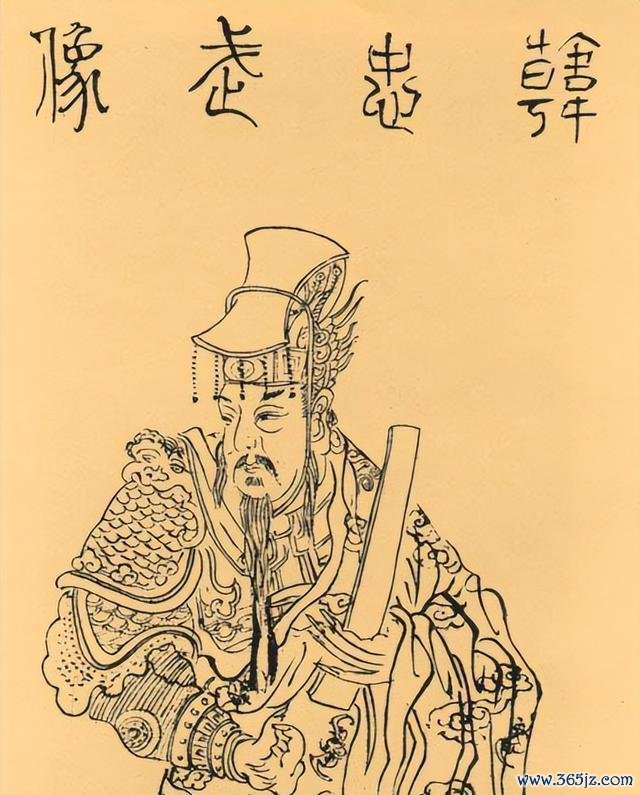 韓忠武像
www.365jz.com